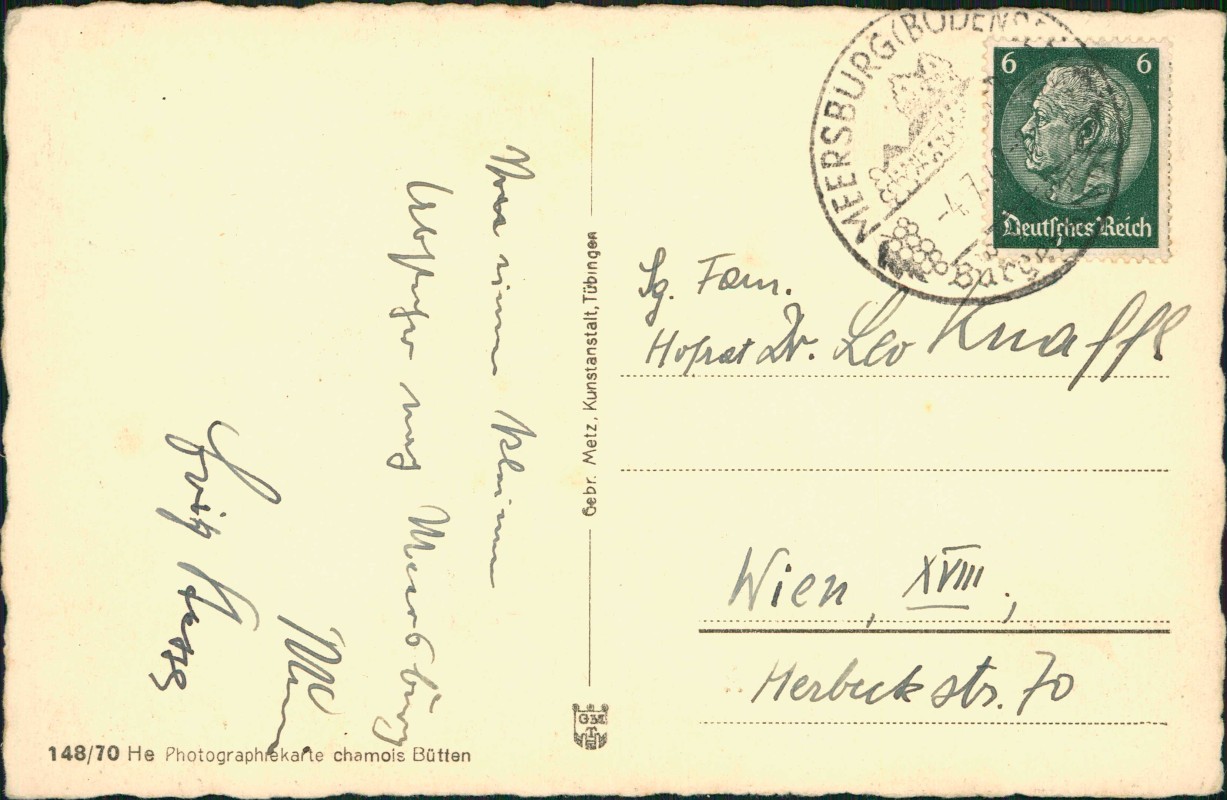 Von einem kleinen
Abstecher nach Meersburg
Fritz
148/70 He Photographiekarte chamois Bütten
Gebr. Metz, Kunstanstalt, Tübingen
MEERSBURG (BODENSEE
-4.7.
Burg
6 6
Deutsches Reich
Sg. Fam.
Hofrat Dr. Leo Knaffl
Wien, XVIII,
Herbeckstr. 70